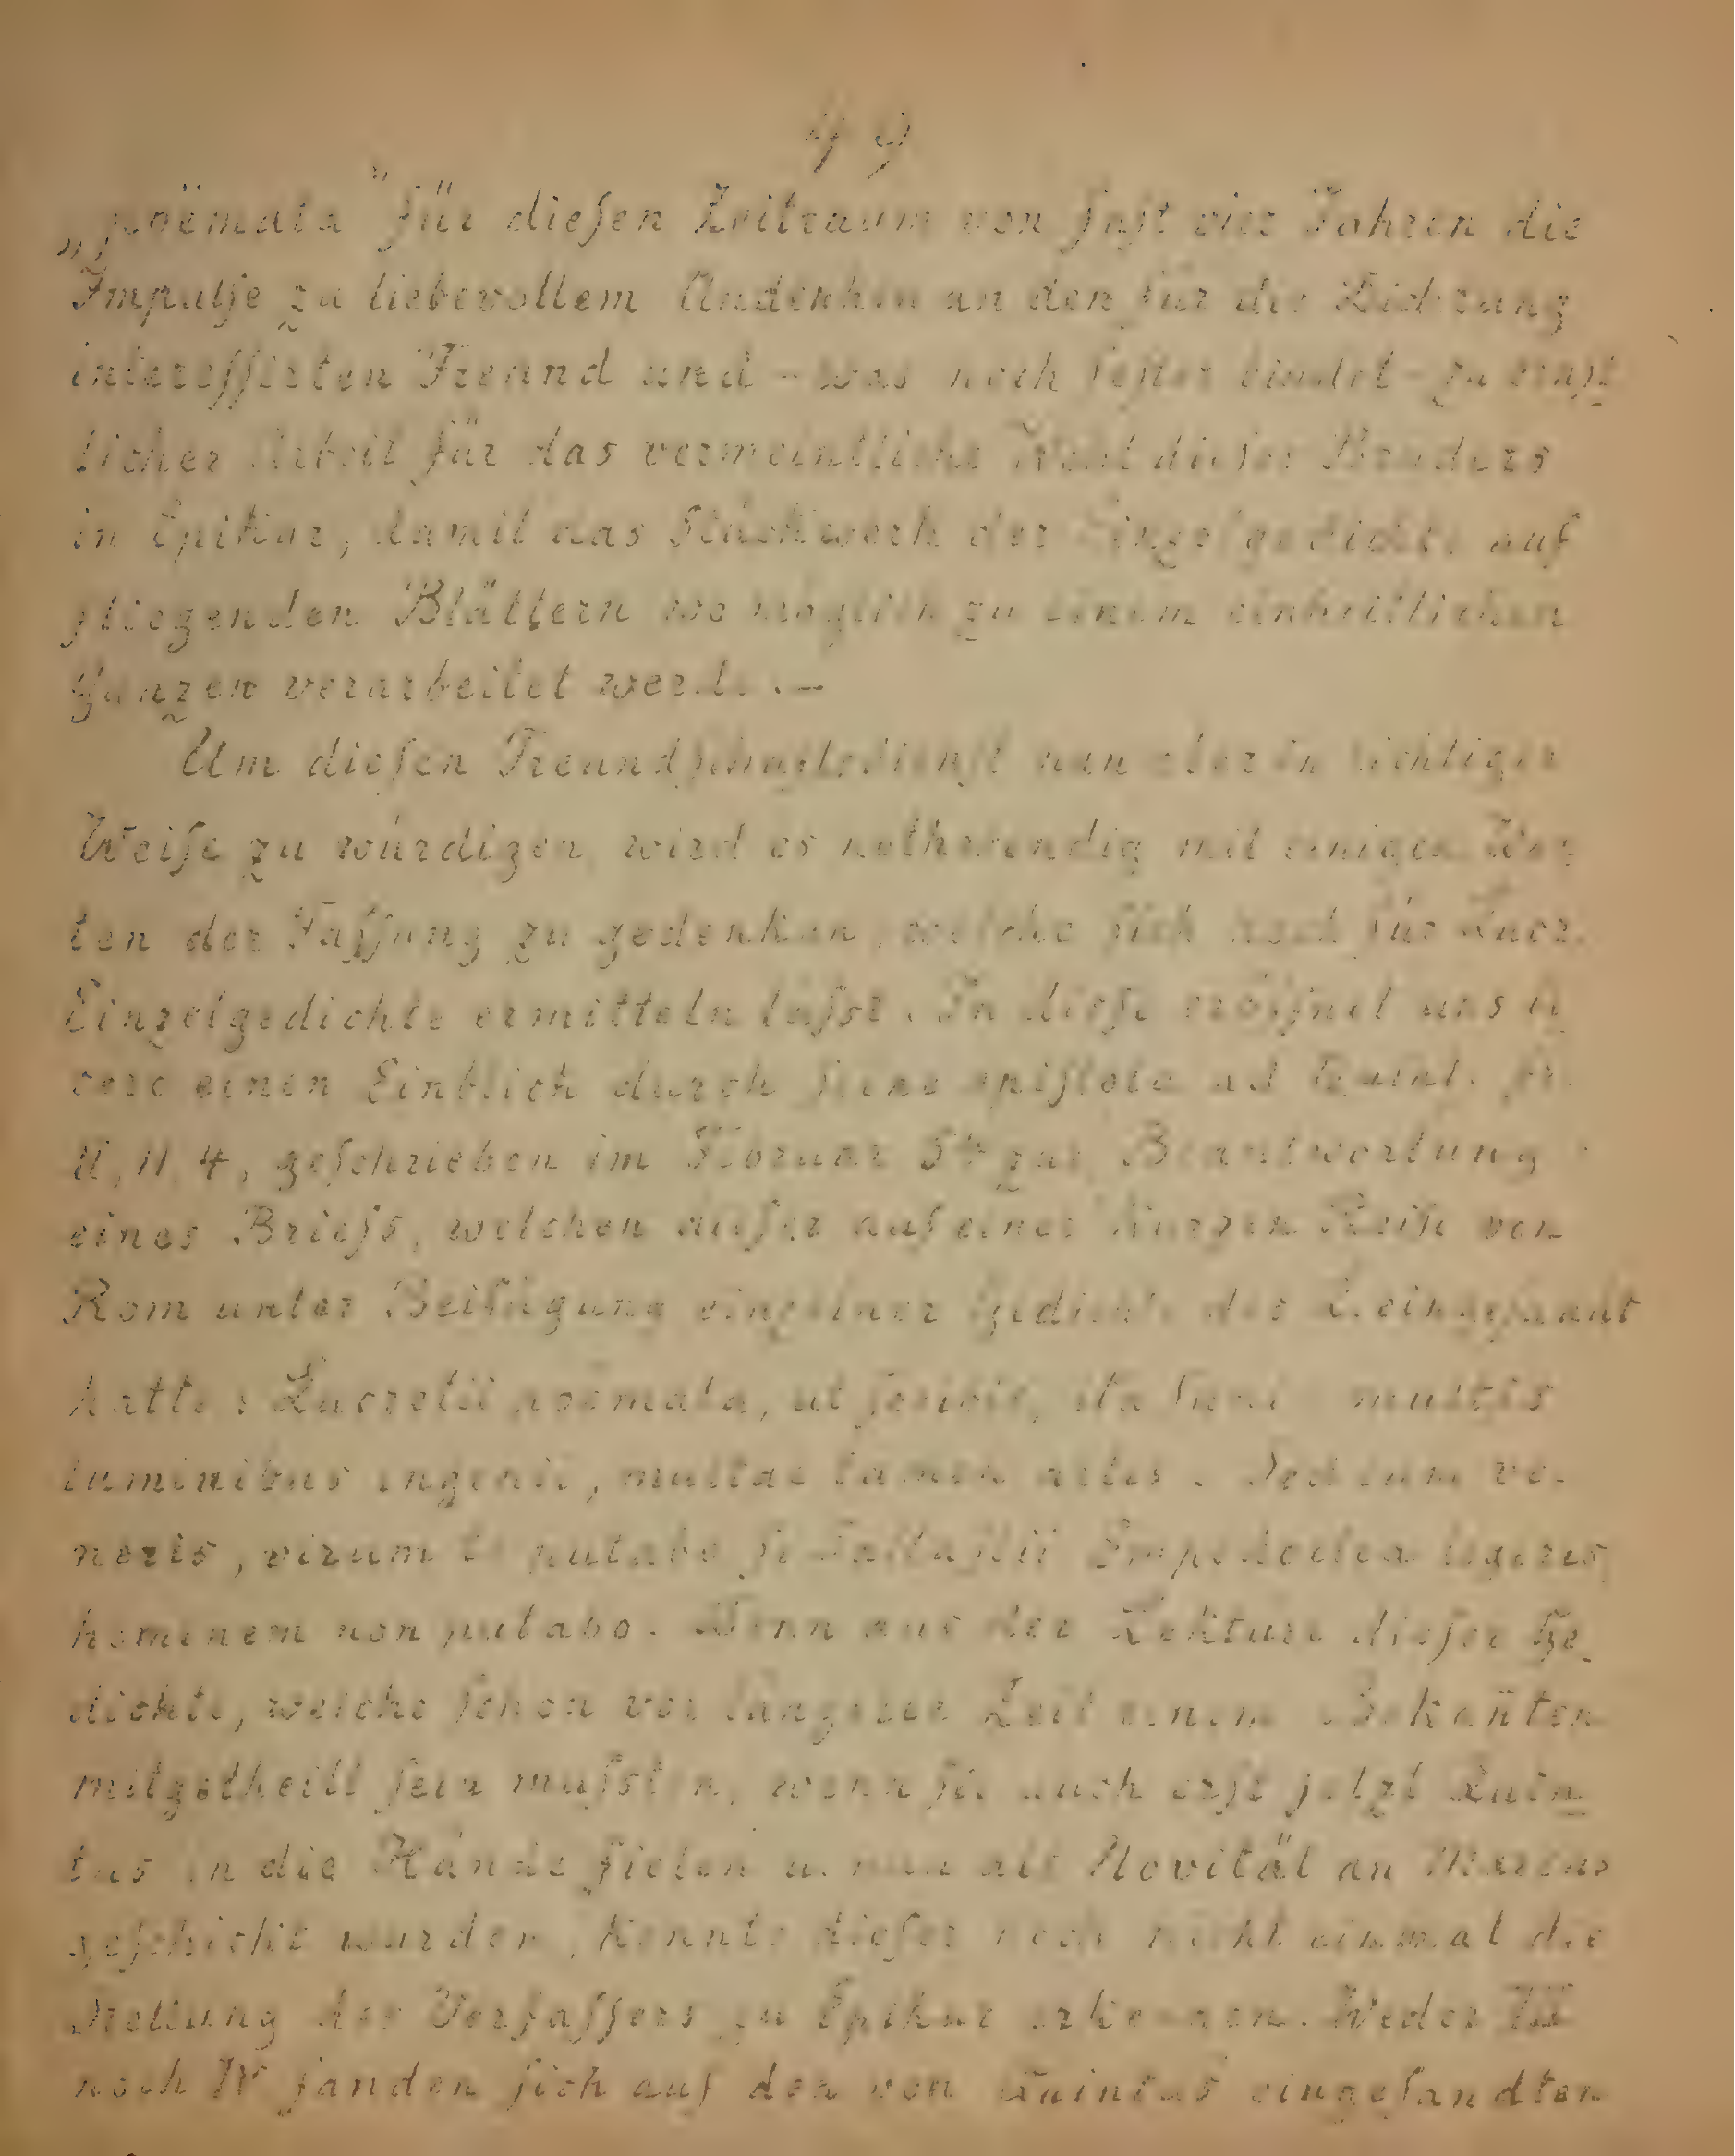 „poëmata" für dieſen Zeitraum von faſt vier Jahren die
Impulſe zu liebevollem Andenken an den für die Richtung
intereſſierten Freund und – was noch feſter bindet – zu
licher Arbeit für das vermeintliche dieſes Bruders
in Epikur, damit das Stückwerk der Einzelgedichte auf
fliegenden Blättern wo möglich zu einem einheitlichen
Ganzen verarbeitet werde. –
Um dieſen Freundſchaftsdienſt nun aber in richtiger
Weiſe zu würdigen, wird es nothwendig mit einigen Wor
ten der Faſſung zu gedenken, welche ſich noch für
Einzelgedichte ermitteln läſst. In dieſe eröffnet uns Ci
cero einen Einblick durch ſeine epiſtola ad Quint. fr.
II, 11, 4, geſchrieben im Februar 54 zur Beantwortung
eines Briefs, welchen dieſer auf einer kurzen Reiſe von
Rom unter Beifügung einzelner Gedichte des
hatte: Lucretii poëmata, ut ſcribis, ita ſunt multis
luminibus ingenii, multae tamen artis. Sed cum ve-
neris, virum te putabo ſi Salluſtii Empedoclea legeris,
hominem non putabo. Denn aus der Lektüre dieſer Ge-
dichte, welche ſchon vor längerer Zeit einem Bekañten
mitgetheilt ſein muſsten, wenn ſie auch erſt jetzt Quin
tus in die Hände fielen u. nun als Novität an Marcus
geſchickt wurden, konnte dieſer noch nicht einmal die
Stellung des Verfaſſers zu Epikur erkennen. Weder III
noch IV fanden ſich auf den von Quintus eingeſandten